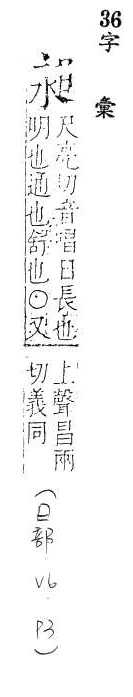 36字彙
昶
尺亮切音唱日長也
明也通也舒也○又
上聲昌兩
切義同
(日部 V6 P3)